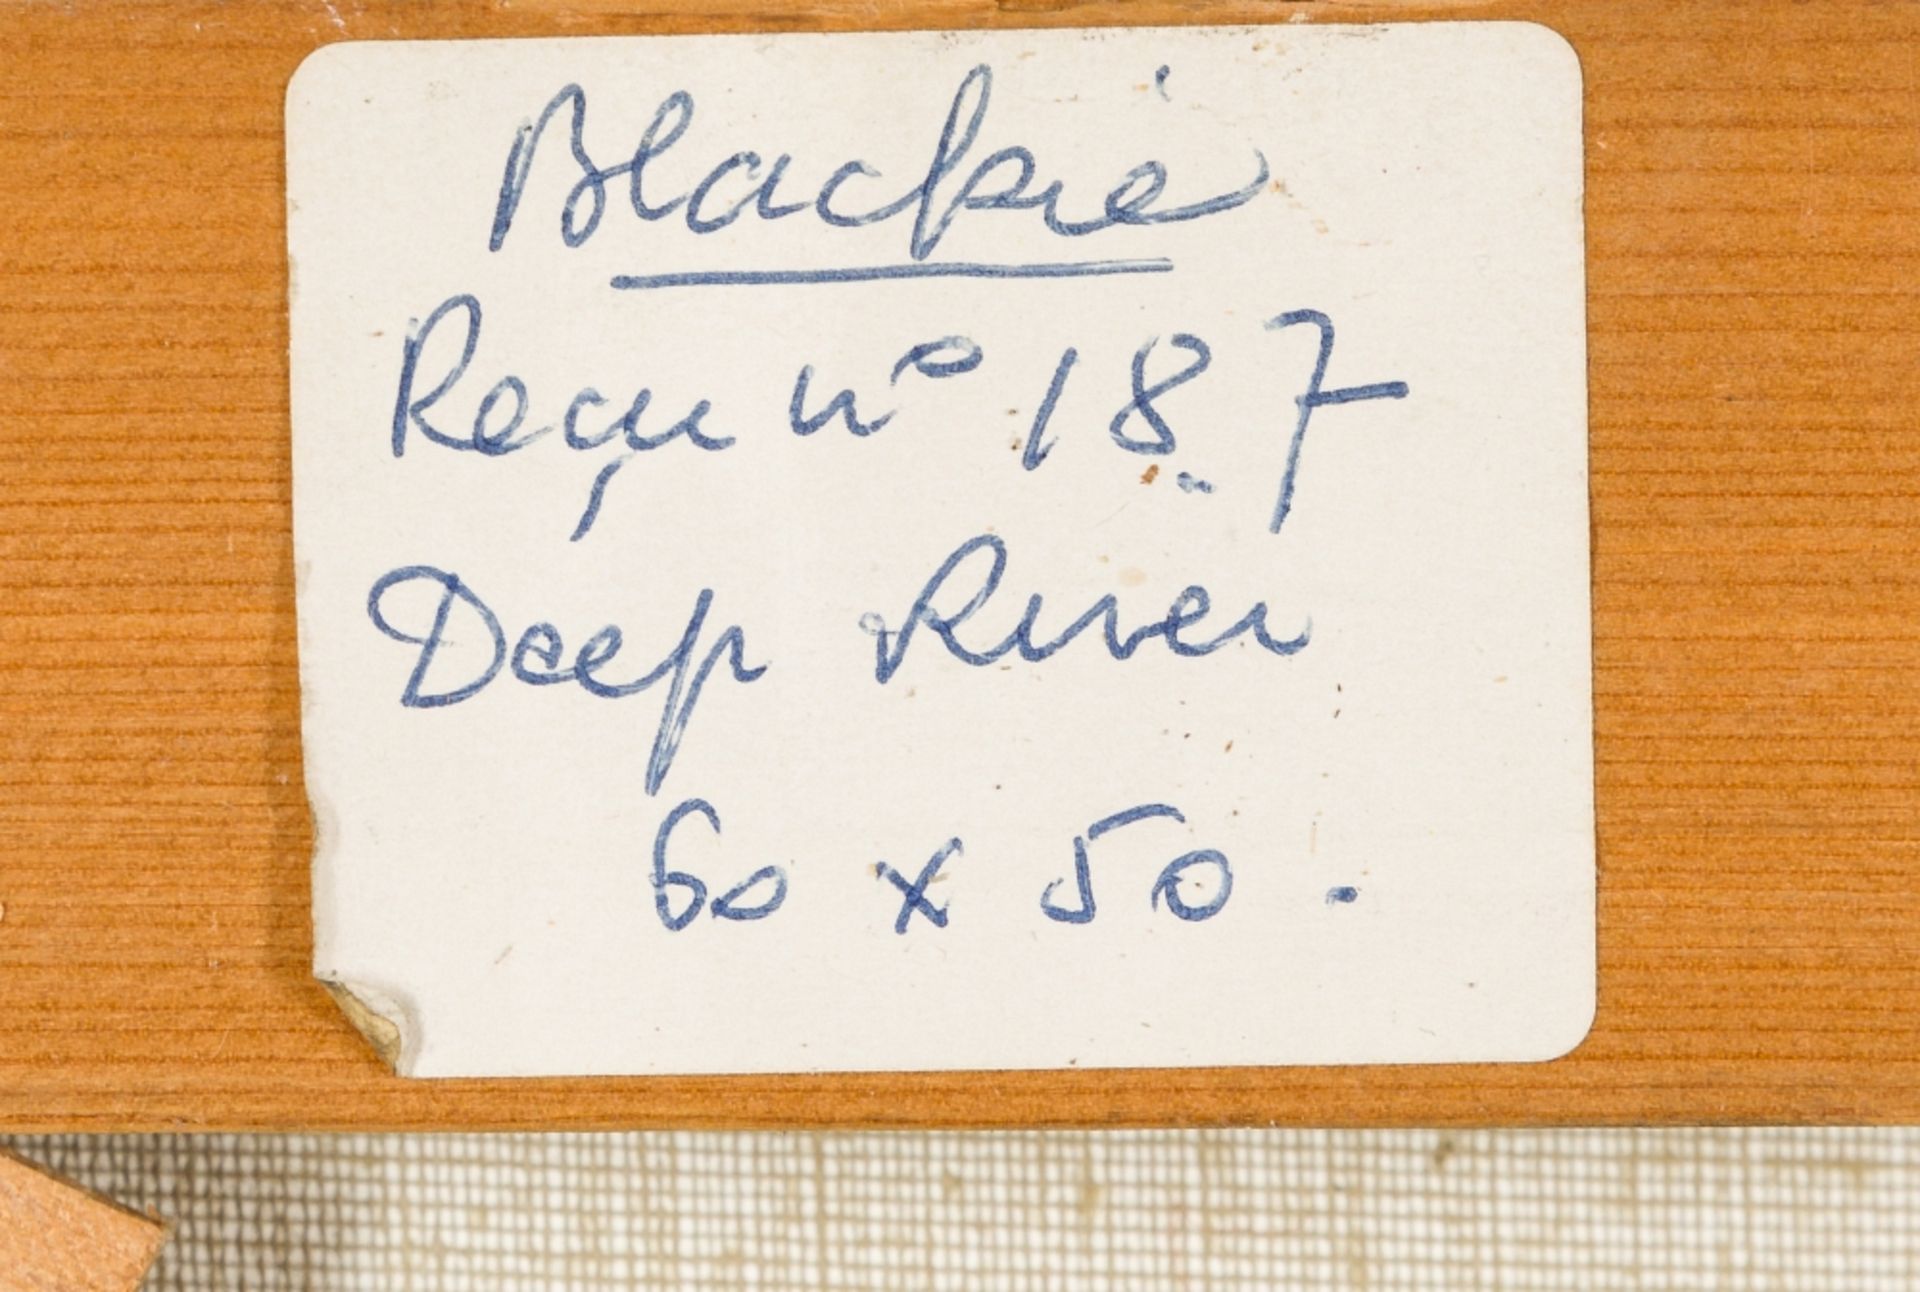 Blackie
Reçu n° 187
Deep River
60 x 50.